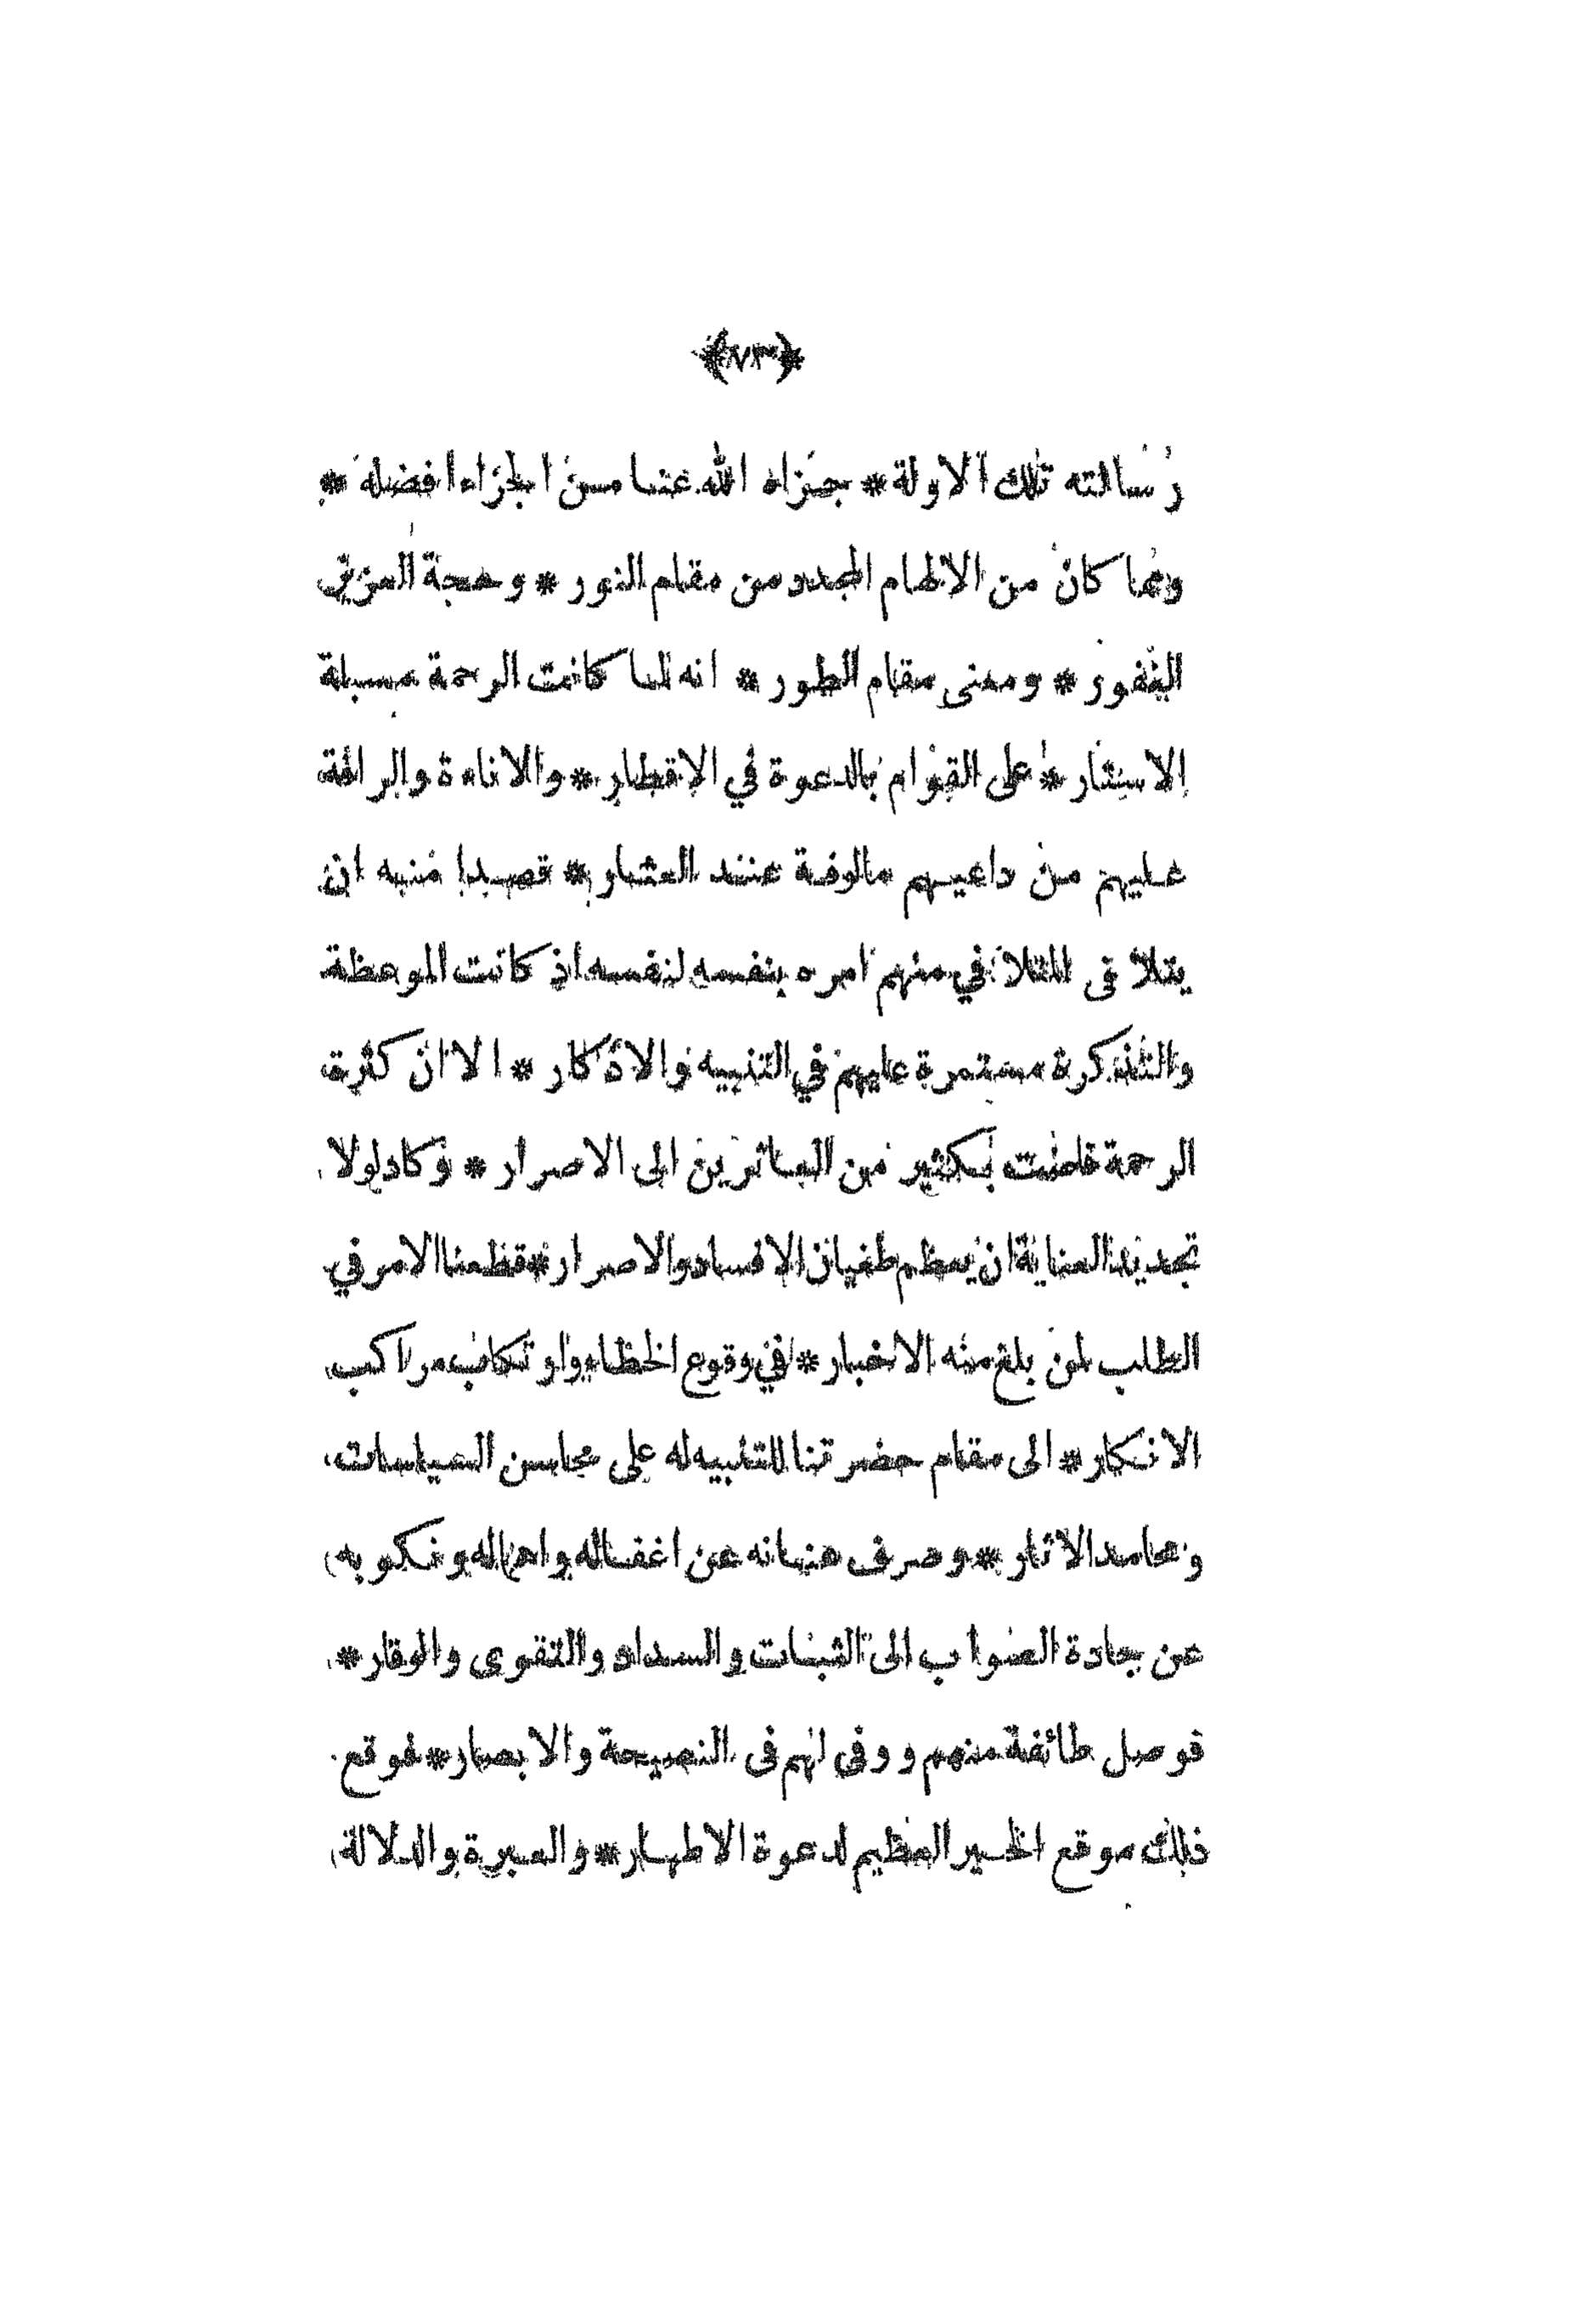 ﴿٧٣﴾
رسالته تلك الاولة * جزاه الله عنا من الجزاء افضله *
ومما كان من الالهام المجدد من مقام النور * وحجة العزيز
الغفور * ومعنى مقام الطور * انه لما كانت الرحمة مسبلة
الاستار * على القوام بالدعوة في الاقطار * والاناءة والرافة
عليهم من داعيهم مالوفة عند العثار * قصدا منه ان
يتلافى المتلافي منهم امره بنفسه لنفسه اذ كانت الموعظة
والتذكرة مستمرة عليهم في التنبيه والاذكار * الا ان كثرة
الرحمة بكثير من العاثرين الى الاصرار * وكاد لولا
تجديد العناية ان يعظم طغيان الافساد والاصرار * قطعنا الامر في
الطلب لمن بلغ منه الاخبار * في وقوع الخطاء مراكب
الانكار * الى مقام حضرتنا للتنبيه له على محاسن السياسات
ومحامد الاثار * وصرف عن اغفاله واهماله ونكوبه
عن جادة الصواب الى الثبات والسداد والتقوى والوقار *
فوصل طائفة منهم ووفى لهم فى النصيحة والابصار * فوقع
ذلك موقع الخير العظيم لدعوة الاطهار * والعبرة والدلالة